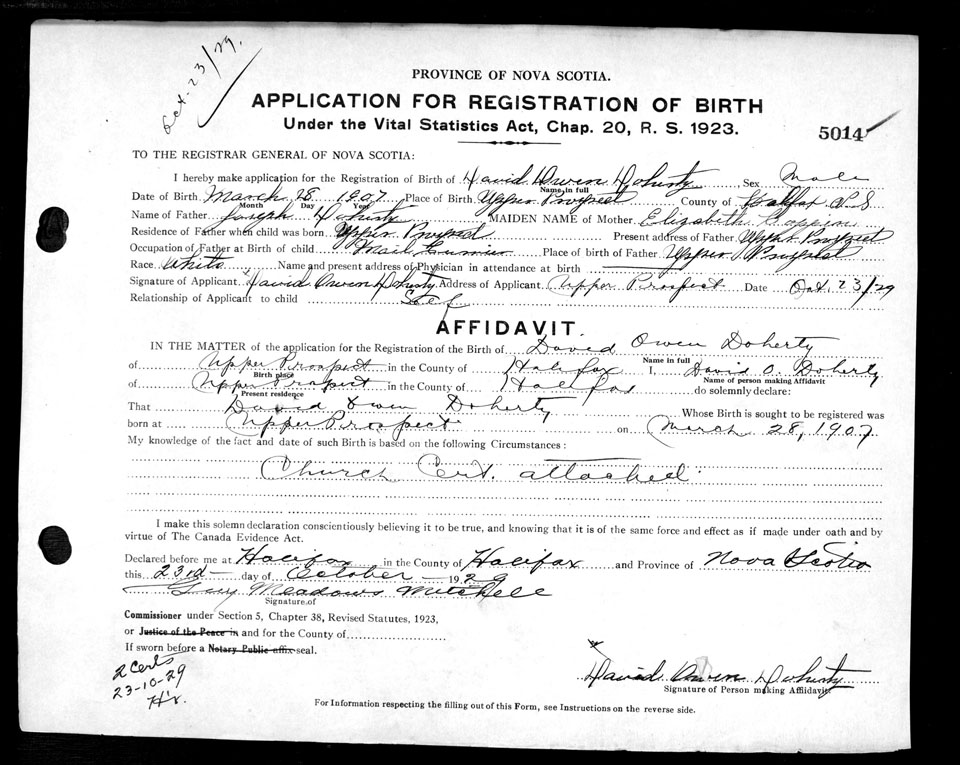 Oct. 23/29.
PROVINCE OF NOVA SCOTIA.
APPLICATION FOR REGISTRATION OF BIRTH
Under the Vital Statistics Act, Chap. 20, R. S. 1923.
5014
TO THE REGISTRAR GENERAL OF NOVA SCOTIA:
I hereby make application for the Registration of Birth of David Owen Doherty Sex Male
Name in full
Date of Birth March 28 1907 Place of Birth Upper Prospect County of Halifax N S
Month Day Year
Name of Father Joseph Doherty MAIDEN NAME of Mother Elizabeth
Residence of Father when child was born Upper Prospect Present address of Father Upper Prospect
Occupation of Father at Birth of child Mail Place of birth of Father Upper Prospect
Race White Name and present address of Physician in attendance at birth
Signature of Applicant David Owen Doherty Address of Applicant Upper Prospect Date Oct. 23/29
Relationship of Applicant to child Self
AFFIDAVIT.
IN THE MATTER of the application for the Registration of the Birth of David Owen Doherty
Name in full
of Upper Prospect in the County of Halifax I, David O. Doherty
Birth place Name of person making Affidavit
of Upper Prospect in the County of Halifax do solemnly declare:
Present residence
That David Owen Doherty Whose Birth is sought to be registered was
born at Upper Prospect on March 28, 1907
My knowledge of the fact and date of such Birth is based on the following Circumstances:
Church Cert. attached
I make this solemn declaration conscientiously believing it to be true, and knowing that it is of the same force and effect as if made under oath and by
virtue of The Canada Evidence Act.
Declared before me at Halifax in the County of Halifax and Province of Nova Scotia
this 23rd day of October 1929
Guy Meadows Mitchell
Signature of
Commissioner under Section 5, Chapter 38, Revised Statutes, 1923,
or Justice of the Peace in and for the County of
If sworn before a Notary Public affix seal.
2 Certs
23-10-29
H'x.
David Owen Doherty
Signature of Person making Affidavit
For Information respecting the filling out of this Form, see Instructions on the reverse side.